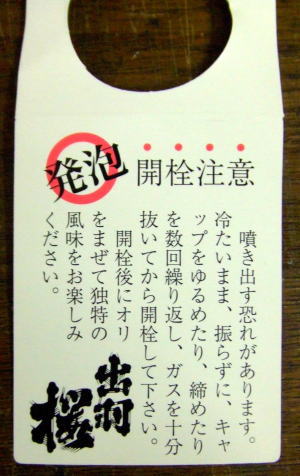 発泡
開栓注意
噴き出す恐れがあります。
冷たいまま、振らずに、キャ
ップをゆるめたり、締めたり
を数回繰り返し、ガスを十分
抜いてから開栓して下さい。
開栓後にオリ
をまぜて独特の
風味をお楽しみ
ください。
出羽桜